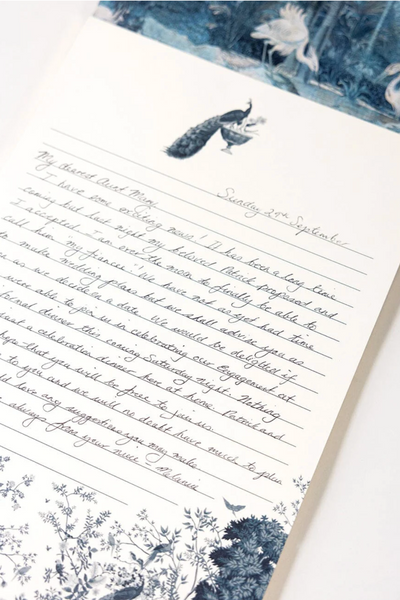 Sunday 29th September
My dearest Aunt Mimi,
I have some exciting news! It has been a long time
coming but last night my beloved Patrick proposed and
I accepted. I am over the moon to finally be able to
call him my fiancé! I have not as yet had time
to make wedding plans but we shall advise you as
as we decide on a date. We would be delighted if
were able to join us in celebrating our engagement at
formal dinner this coming Saturday night. Nothing
just a celebration dinner here at home. Patrick and
hope that you will be free to join us
to you and we will no doubt have much to plan
have any suggestions you may make.
always from your niece Melanie